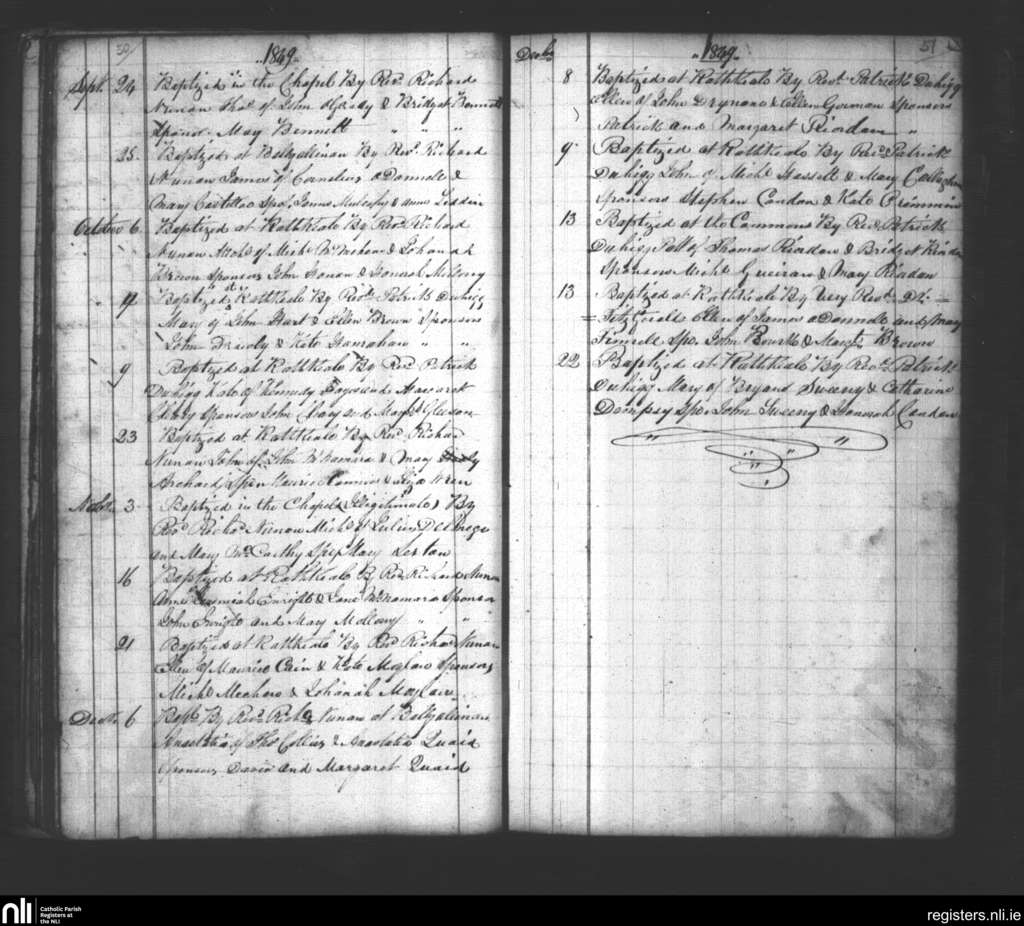 50
1849
Sept. 24 Baptized in the Chapel By Revd. Richard
Nunan Thos. of John & Bridget Bennett
Sponsr. May Bennett " " "
25. Baptized at Ballyallinan By Revd. Richard
Nunan James of Cornelius oDonnell &
Mary Costelloe Spo. James & Anne Liddin
October 6. Baptized at Rathkeale By Revd. Richard
Nunan of Michl. McMahon & Johanah
Brown Sponsors John & Honorah
9 Baptized at Rathkeale By Revd. Patrick Duhigg
Mary of John Hart & Ellen Brown Sponsors
John & Kate Hanrahan " "
9 Baptized at Rathkeale By Revd. Patrick
Duhigg Kate of Kennedy and Margaret
Sponsors John and Margt. Gleeson
23 Baptized at Rathkeale By Revd. Richard
Nunan John of John McNamara & Mary
Archard Spon Maurice & Eliza Wren
Nobr. 3 Baptized in the Chapel (Illigitimate) By
Revd. Richd. Nunan Michl. of Julius
and Mary McCarthy Sps Mary
16 Baptized at Rathkeale By Revd. Richard Nunan
Anne Jeremiah Enright & Jane McNamara Sponsors
John Enright and Mary Mollony " "
21 Baptized at Rathkeale By Revd. Richard Nunan
Ellen of Maurice Cain & Kate Sponsors
Michl. Meehan & Johanah
Decbr. 6 Bapd. By Revd. Richd. Nunan at Ballyalinan
Anastatia of Thos Collins & Anastatia Quaid
Sponsors David and Margaret Quaid
51
Decbr 1849
8 Baptized at Rathkeale By Revd. Patrick Duhigg
Ellen of John Drynane & Ellen Gorman Sponsors
Patrick and Margaret Riordan "
9 Baptized at Rathkeale By Revd. Patrick
Duhigg John of Michl Hassett & Mary Callaghan
Sponsors Stephen Condon & Kate
13 Baptized at the Commons By Revd. Patrick
Duhigg Patt of Thomas Riordan & Bridget
Sponsors Michl & Mary Riordan
13 Baptized at Rathkeale By Very Revd. Dr. =
= Fitzgerald Ellen of James oDonnell and Mary
Spo. John Bourk & Margt. Brown
22 Baptized at Rathkeale By Revd. Patrick
Duhigg Mary of Bryand Sweeny & Catharine
Dempsy Spo. John Sweeny & Hannah Condon
nli
Catholic Parish
Registers at
the NLI
registers.nli.ie